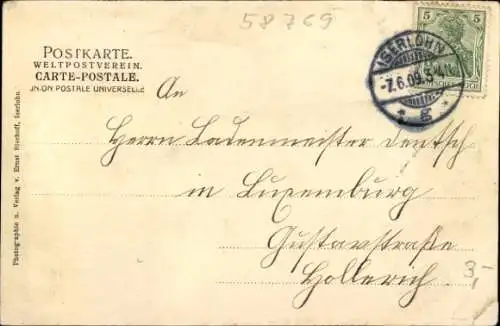 58769
POSTKARTE.
WELTPOSTVEREIN.
CARTE-POSTALE.
UNION POSTALE UNIVERSELLE
5 5
ISERLOHN
-7.6.09.3-4N.
* 1 g *
An
Herrn Ladenmeister Deutsch
in Luxemburg
Gustavstraße
Hollerich.
3,-
Photographie u. Verlag v. Ernst Bierhoff, Iserlohn